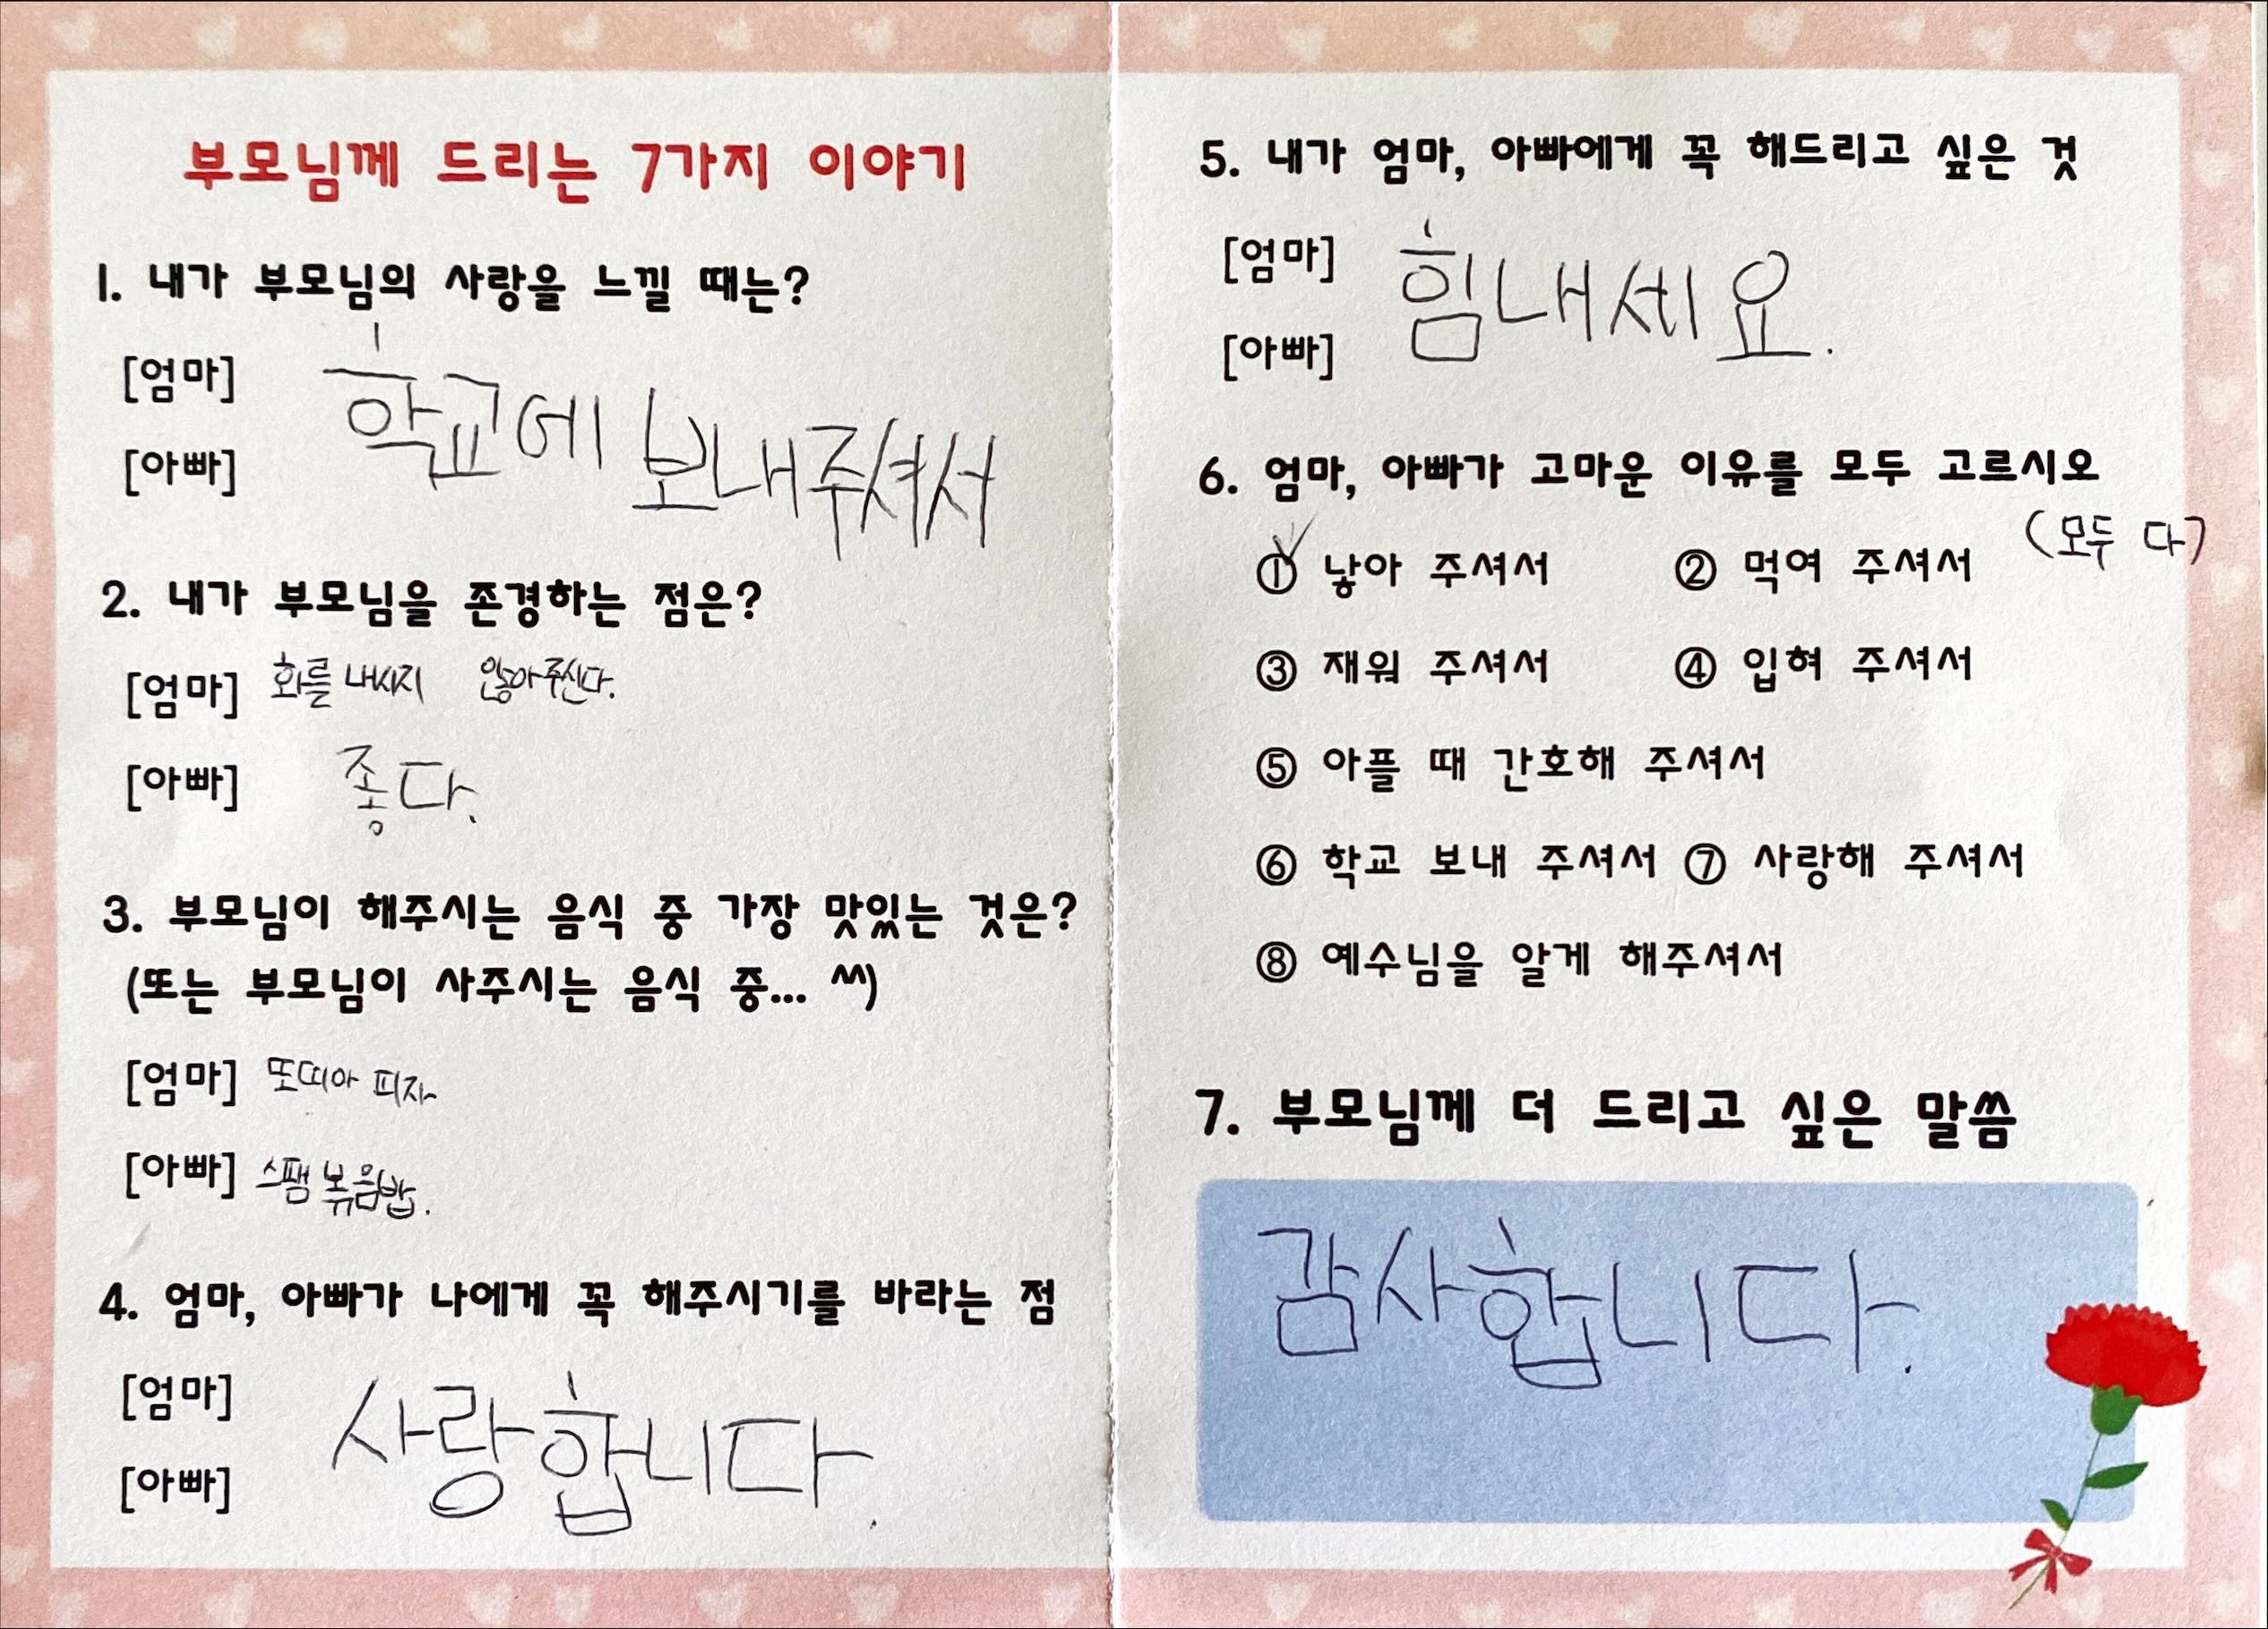 부모님께 드리는 7가지 이야기
1. 내가 부모님의 사랑을 느낄 때는?
[엄마]
학교에 보내주셔서
[아빠]
2. 내가 부모님을 존경하는 점은?
[엄마] 화를 내시지 않아주신다.
[아빠] 좋다.
3. 부모님이 해주시는 음식 중 가장 맛있는 것은?
(또는 부모님이 사주시는 음식 중... ^^)
[엄마] 또띠아 피자
[아빠] 스팸 볶음밥.
4. 엄마, 아빠가 나에게 꼭 해주시기를 바라는 점
[엄마]
사랑합니다.
[아빠]
5. 내가 엄마, 아빠에게 꼭 해드리고 싶은 것
[엄마]
힘내세요.
[아빠]
6. 엄마, 아빠가 고마운 이유를 모두 고르시오
(모두 다)
① 낳아 주셔서 ② 먹여 주셔서
③ 재워 주셔서 ④ 입혀 주셔서
⑤ 아플 때 간호해 주셔서
⑥ 학교 보내 주셔서 ⑦ 사랑해 주셔서
⑧ 예수님을 알게 해주셔서
7. 부모님께 더 드리고 싶은 말씀
감사합니다.